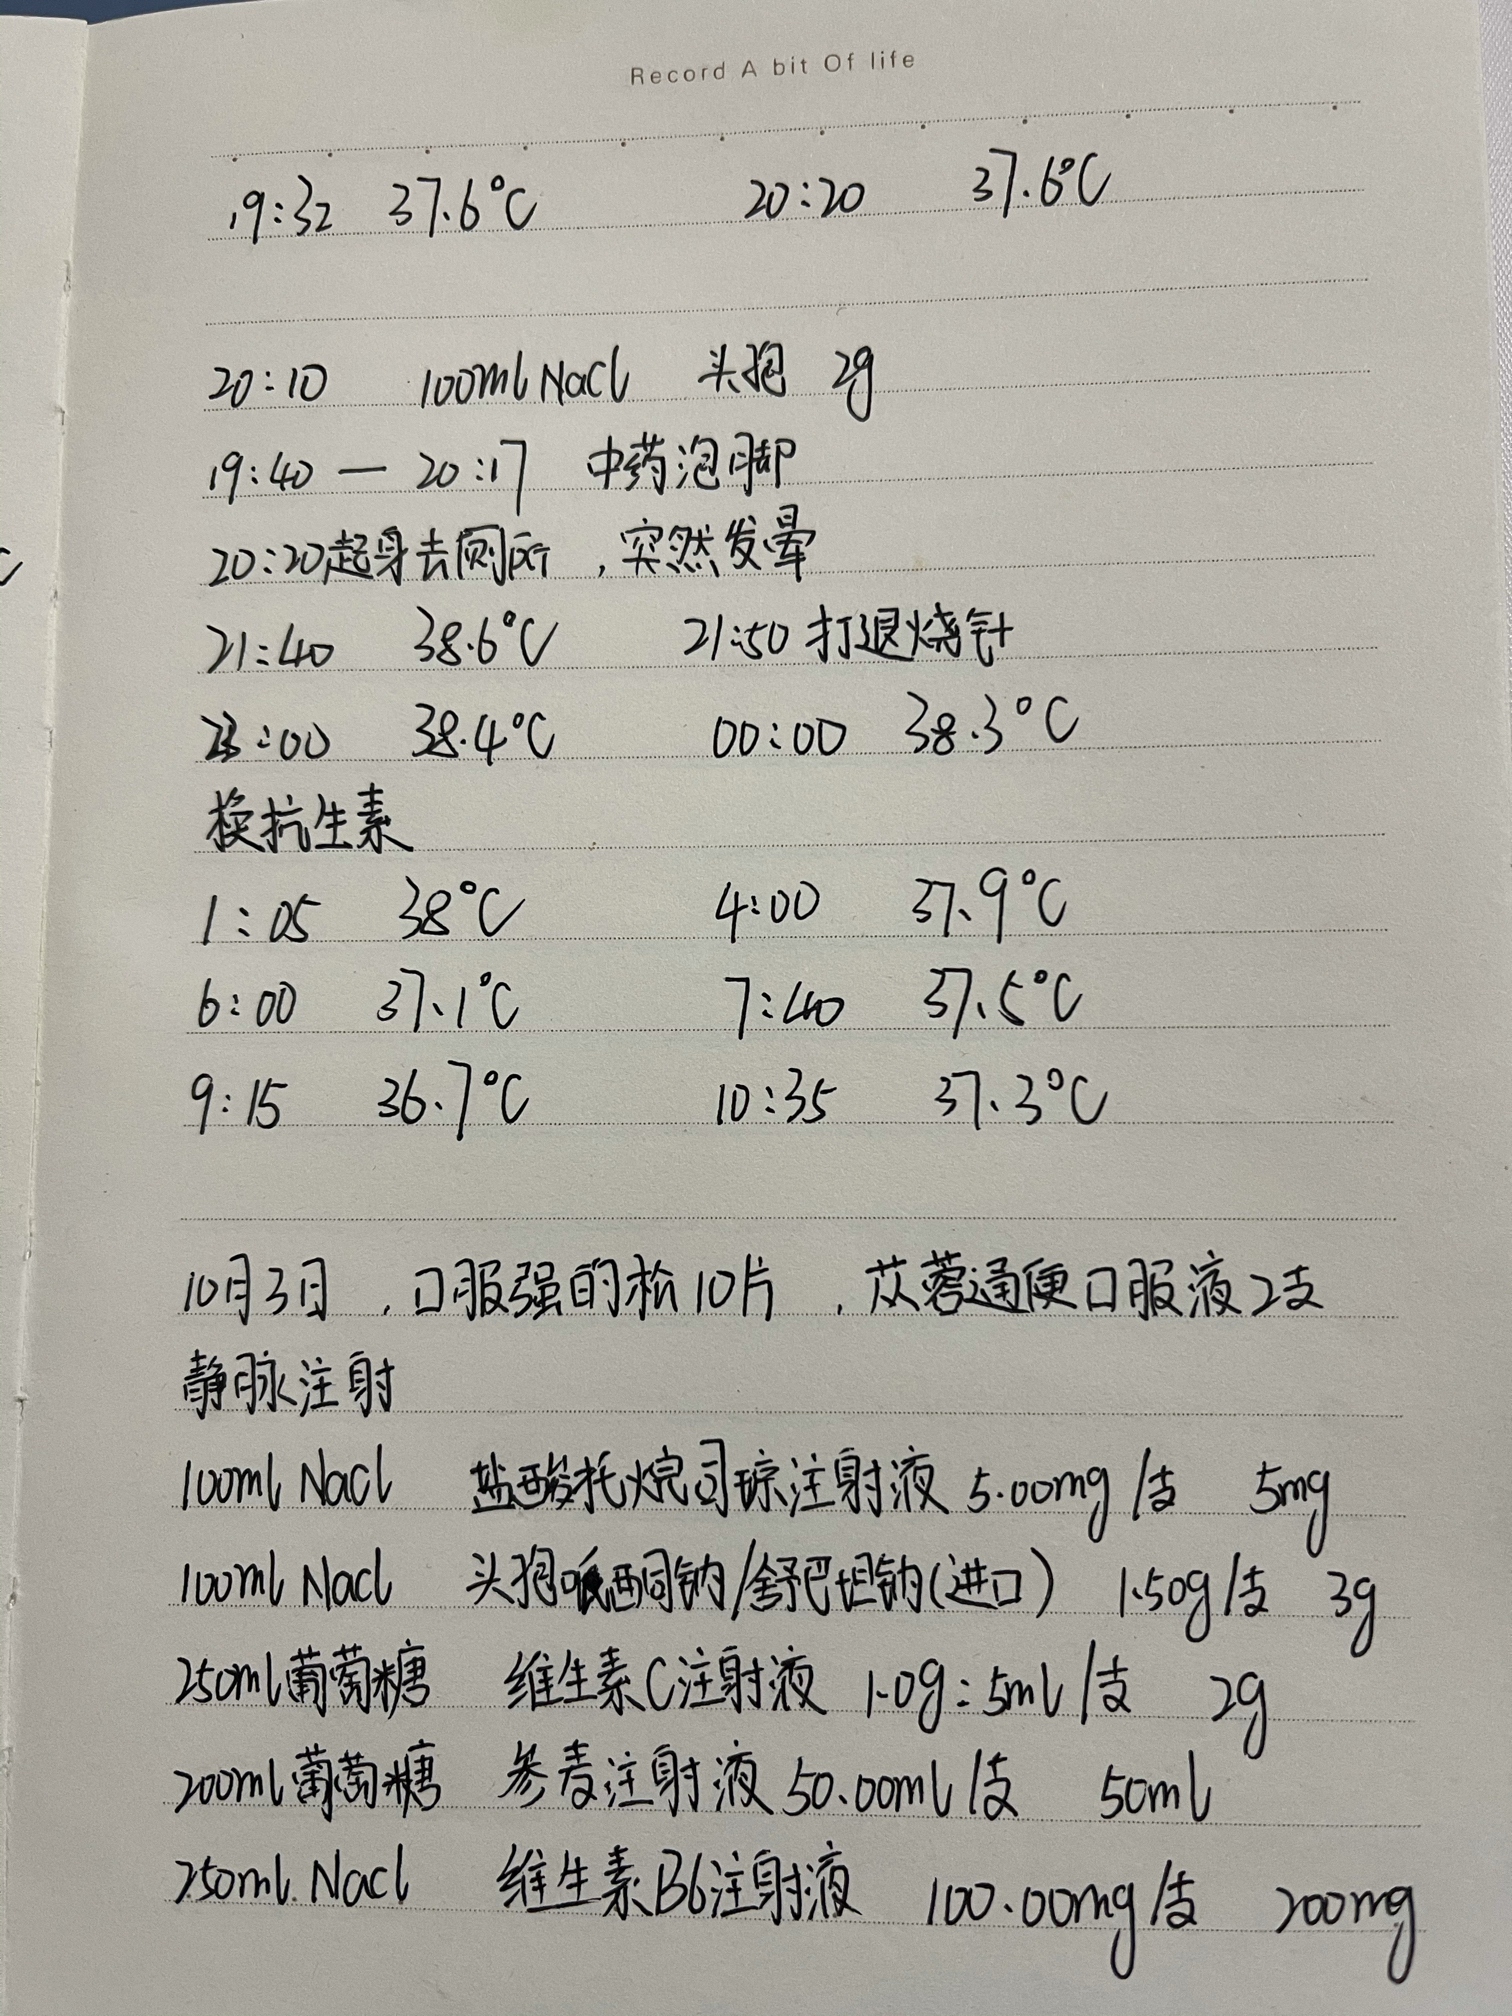 Record A bit Of life
19:32 37.6°C 20:20 37.6°C
20:10 100ml NaCl 头孢 2g
19:40 — 20:17 中药泡脚
20:20起身去厕所，突然发晕
21:40 38.6°C 21:50 打退烧针
23:00 38.4°C 00:00 38.3°C
换抗生素
1:05 38°C 4:00 37.9°C
6:00 37.1°C 7:40 37.5°C
9:15 36.7°C 10:35 37.3°C
10月3日，口服强的松10片，苁蓉通便口服液2支
静脉注射
100ml NaCl 盐酸托烷司琼注射液 5.00mg/支 5mg
100ml NaCl 头孢哌酮钠/舒巴坦钠(进口) 1.50g/支 3g
250ml葡萄糖 维生素C注射液 1.0g:5ml/支 2g
200ml葡萄糖 参麦注射液 50.00ml/支 50ml
250ml NaCl 维生素B6注射液 100.00mg/支 200mg